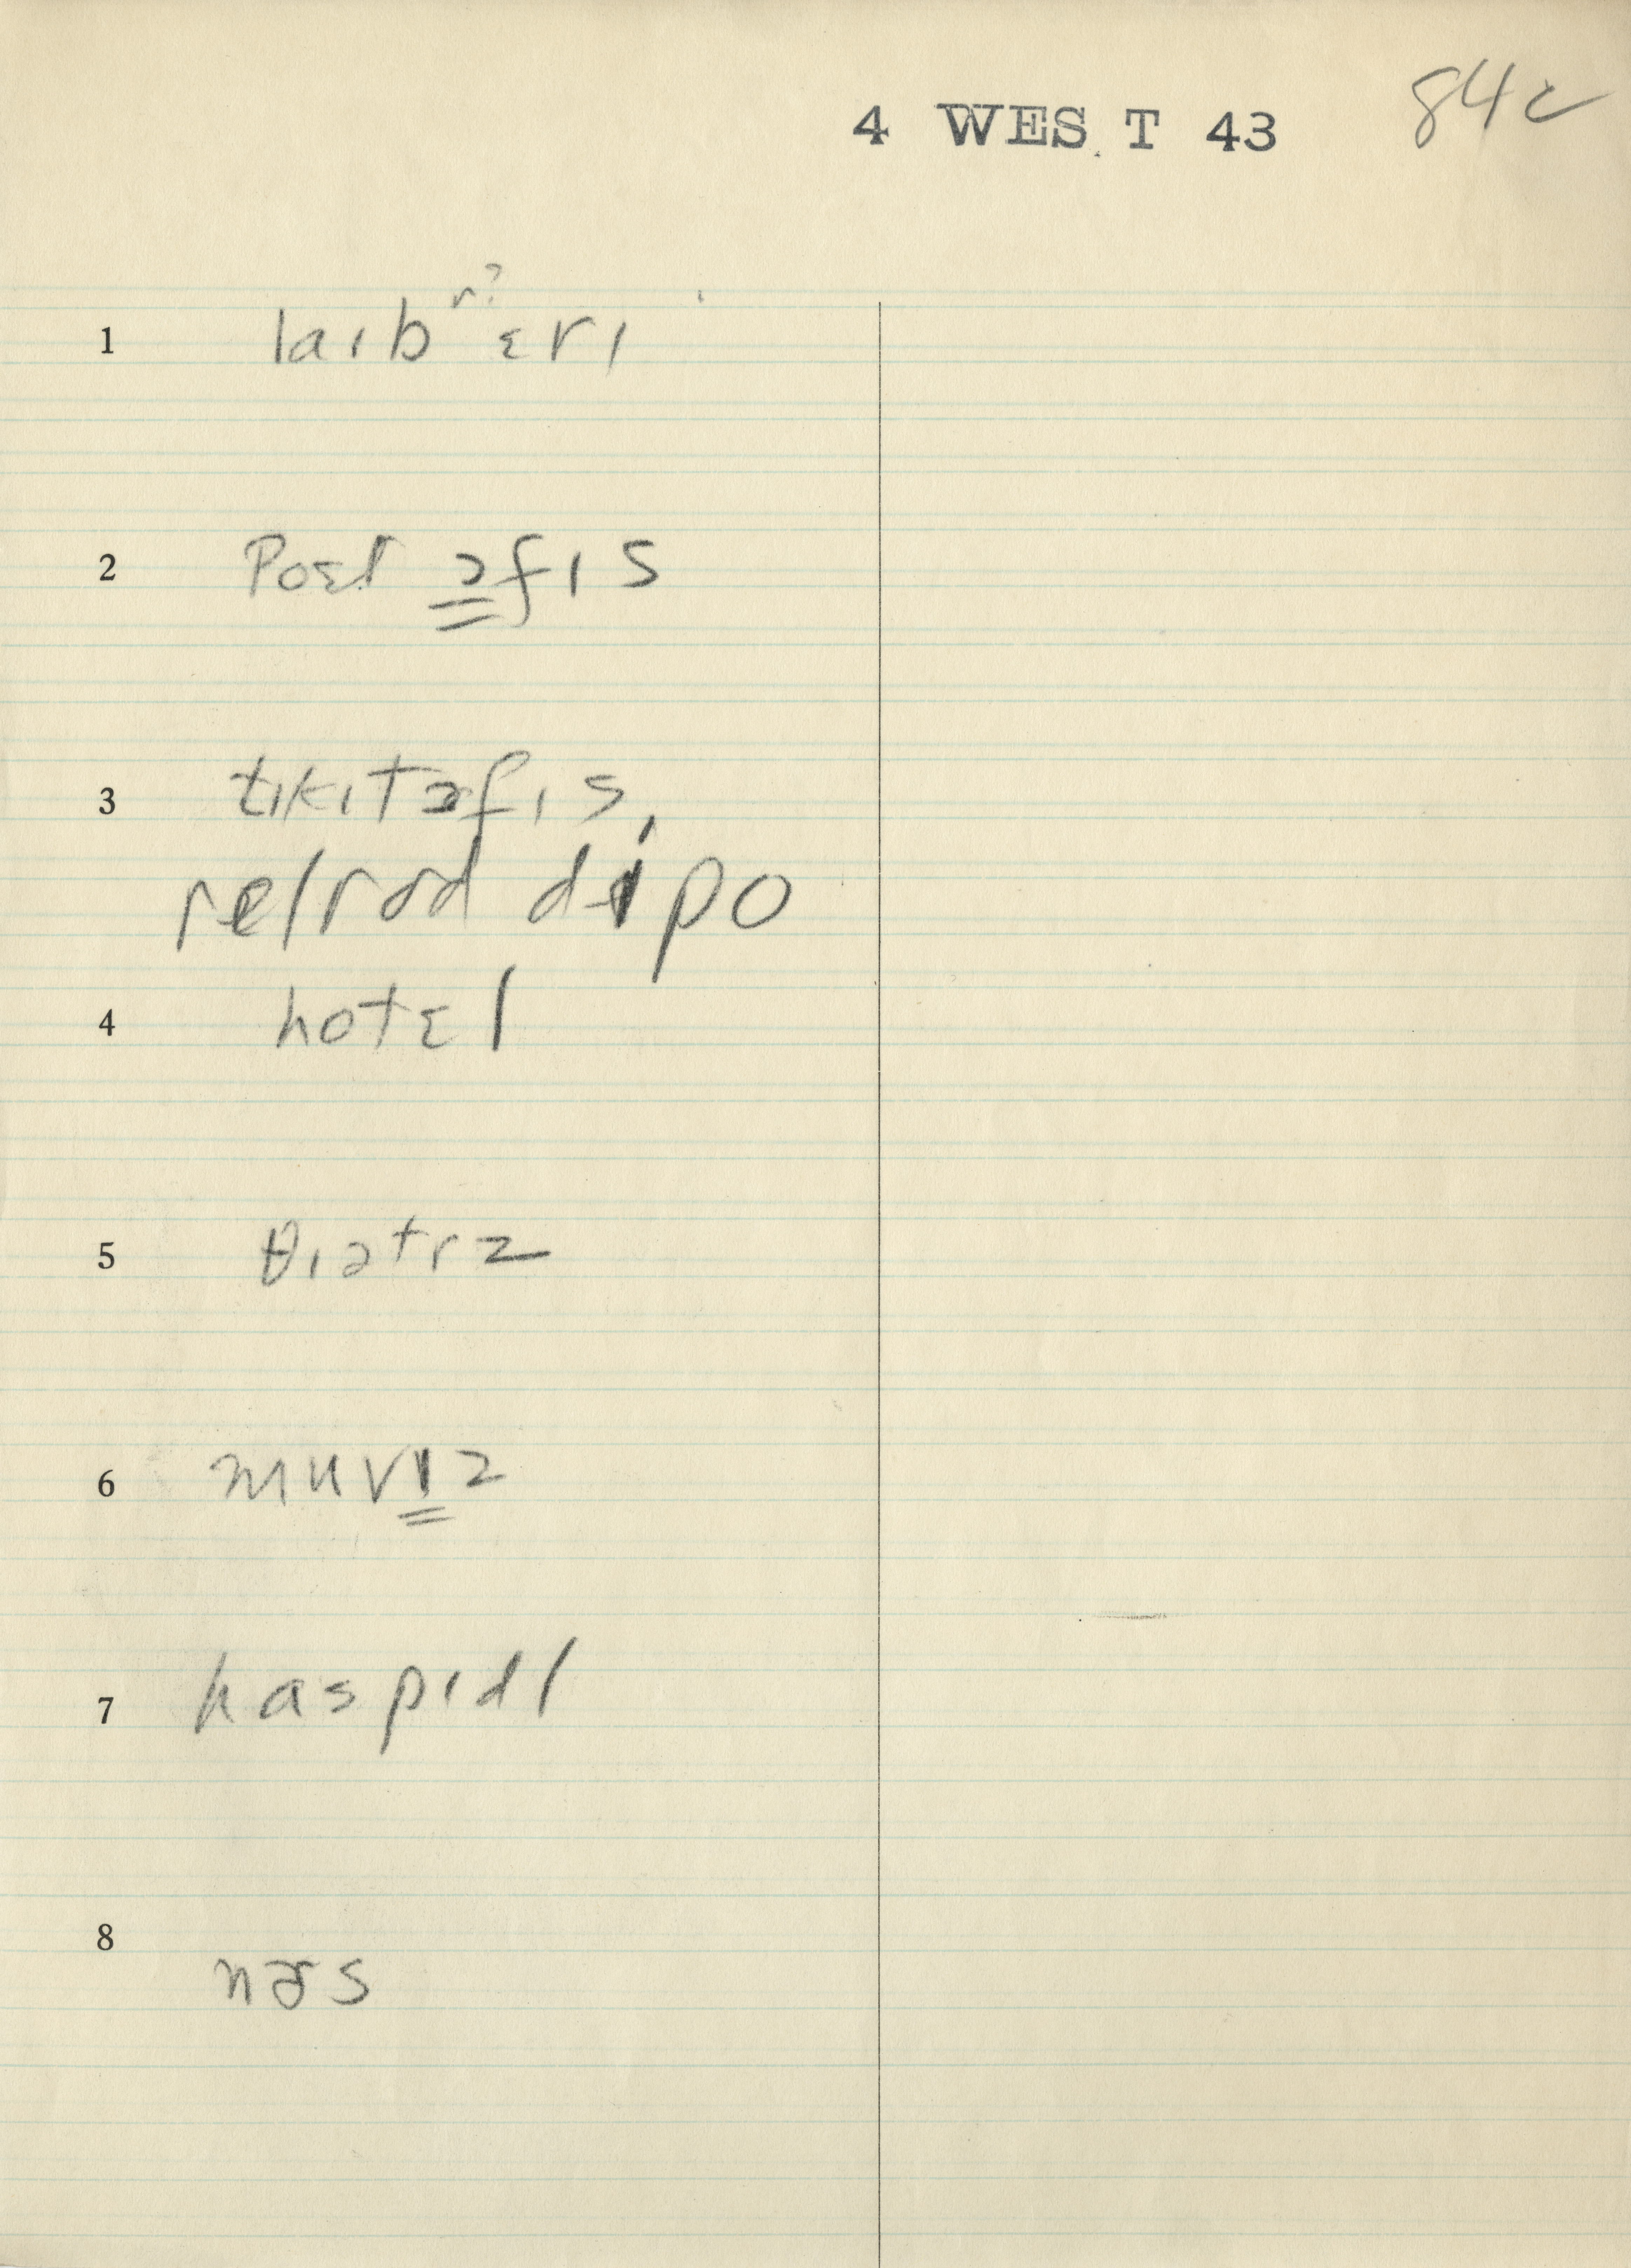 4 WEST 43 84c
r?
1 laɪbɛrɪ
2 Post ɔfɪs
3 tɪkɪtɔfɪs,
relrod dɪpo
4 hotɛl
5 θɪətrz
6 muvɪz
7 haspɪdl
8 nɚs